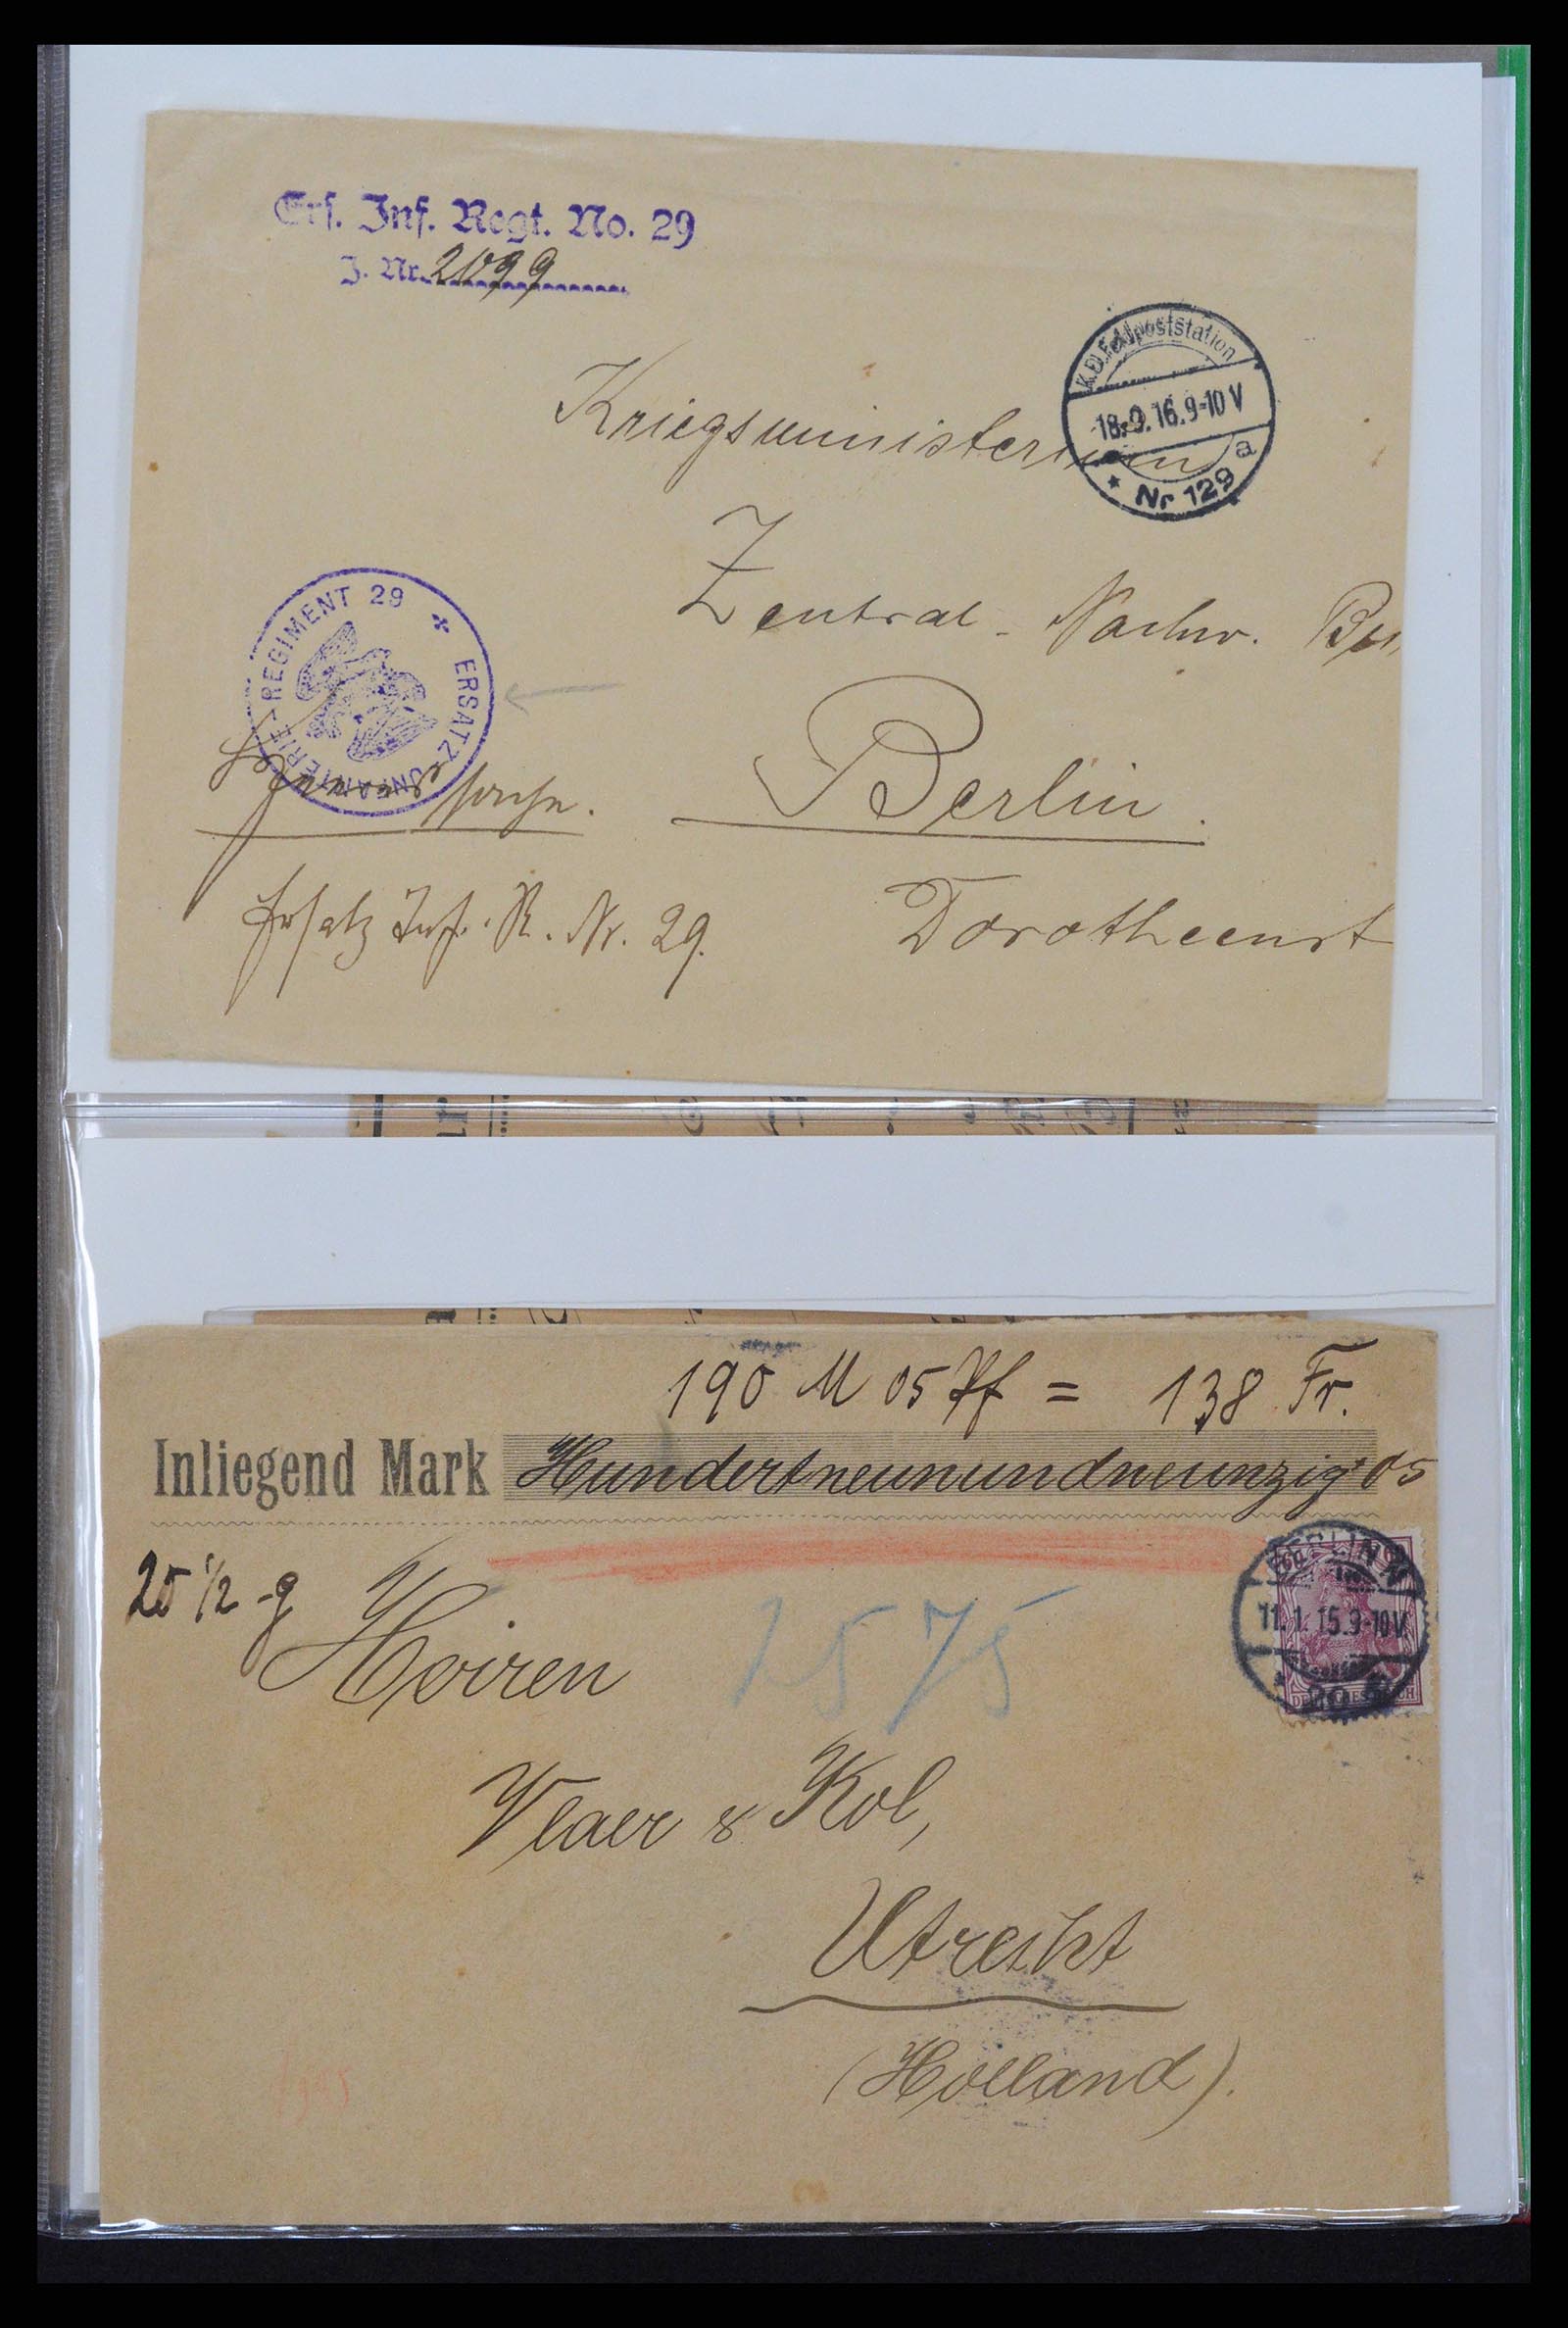 Ers. Inf. Regt. No. 29
J. Nr. 2099
K.D. Feldpoststation
18.9.16.9-10 V
a
* Nr 129
Kriegsministerium
Zentral - Nachw. Bu
ERSATZ-INFANTERIE-REGIMENT 29
Heeressache.
Berlin.
Ersatz Inf. R. Nr. 29.
Dorotheenst
190 M 05 Pf = 138 Fr.
Inliegend Mark Hundertneunundneunzig 05
25 1/2 g
BERLIN
11.1.15.9-10 V.
60
DEUTSCHES REICH
2575
Herren
Vlaer & Kol,
Utrecht
(Holland).